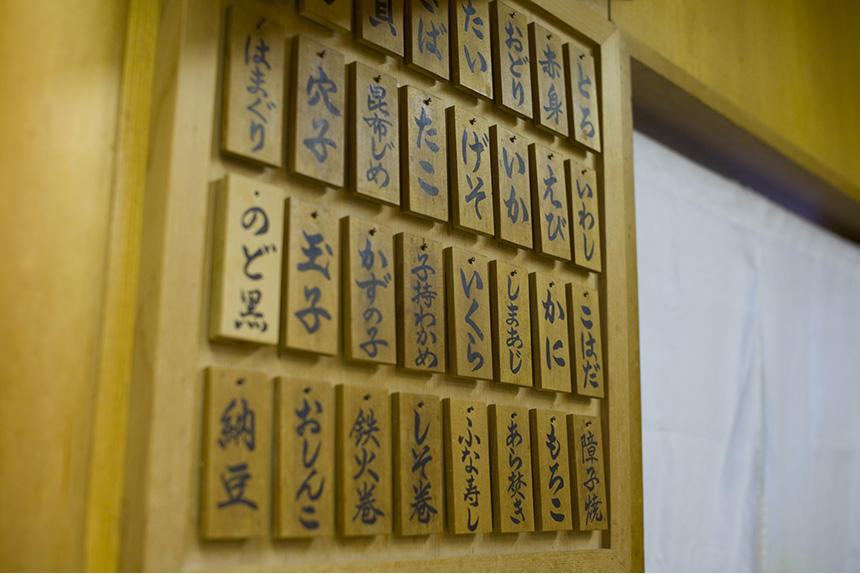 とろ
赤身
おどり
たい
いわし
えび
いか
げそ
たこ
昆布じめ
穴子
はまぐり
こはだ
かに
しまあじ
いくら
子持わかめ
かずの子
玉子
のど黒
障子焼
もろこ
あら焚き
ふな寿し
しそ巻
鉄火巻
おしんこ
納豆